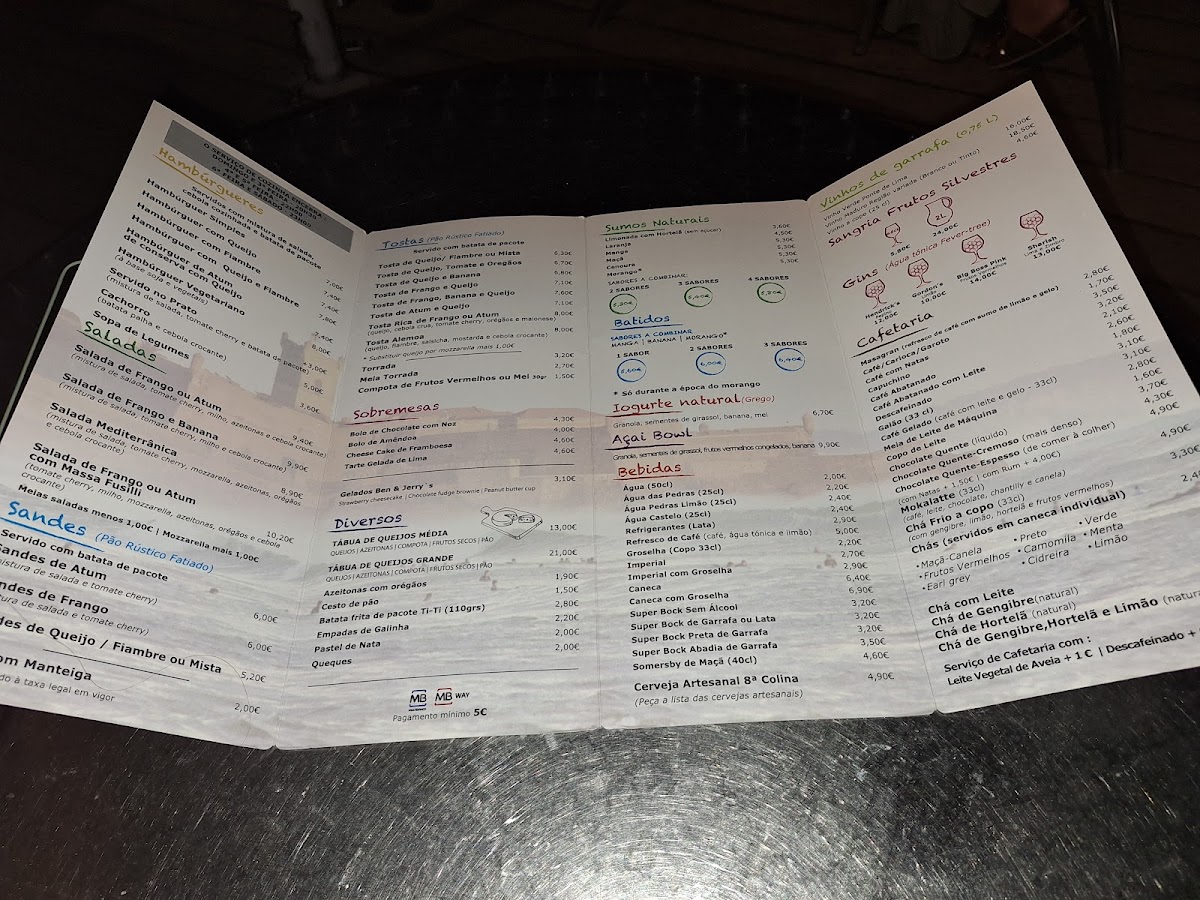 O SERVIÇO DE COZINHA ENCERRA :
Hambúrgueres
Servidos com mistura de salada,
cebola cozinhada e batata de pacote
Hambúrguer Simples
Hambúrguer com Queijo
Hambúrguer com Fiambre
Hambúrguer com Queijo e Fiambre
Hambúrguer de Atum
de conserva com Queijo
Hambúrguer Vegetariano
(à base soja e vegetais)
Servido no Prato
(mistura de salada, tomate cherry e batata de pacote)
Cachorro
(batata palha e cebola crocante)
Sopa de Legumes
3,60€
Saladas
Salada de Frango ou Atum
(mistura de salada, tomate cherry, milho, azeitonas e cebola crocante) 9,40€
Salada de Frango e Banana
(mistura de salada, tomate cherry, milho, azeitonas e cebola crocante) 9,90€
Salada Mediterrânica
(mistura de salada, tomate cherry, mozzarella, azeitonas, orégãos
e cebola crocante) 8,90€
Salada de Frango ou Atum
com Massa Fusilli
(tomate cherry, milho, mozzarella, azeitonas, orégãos e cebola
crocante) 10,20€
Meias saladas menos 1,00€ | Mozzarella mais 1,00€
Sandes (Pão Rústico Fatiado)
Servido com batata de pacote
Sandes de Atum 6,00€
mistura de salada e tomate cherry)
des de Frango 6,00€
tura de salada e tomate cherry)
des de Queijo / Fiambre ou Mista 5,20€
om Manteiga 2,00€
do à taxa legal em vigor
Tostas (Pão Rústico Fatiado)
Servido com batata de pacote
Tosta de Queijo/ Fiambre ou Mista 6,30€
Tosta de Queijo, Tomate e Orégãos 6,70€
Tosta de Queijo e Banana 6,80€
Tosta de Frango e Queijo 7,10€
Tosta de Frango, Banana e Queijo 7,60€
Tosta de Atum e Queijo 7,10€
Tosta Rica de Frango ou Atum 8,00€
(queijo, cebola crua, tomate cherry, orégãos e maionese)
Tosta Alemoa 8,00€
(queijo, fiambre, salsicha, mostarda e cebola crocante)
* Substituir queijo por mozzarella mais 1,00€
Torrada 3,20€
Meia Torrada 2,70€
Compota de Frutos Vermelhos ou Mel 30gr 1,50€
Sobremesas
Bolo de Chocolate com Noz 4,30€
Bolo de Amêndoa 4,00€
Cheese Cake de Framboesa 4,60€
Tarte Gelada de Lima 4,60€
Gelados Ben & Jerry´s 3,10€
Strawberry cheesecake | Chocolate fudge brownie | Peanut butter cup
Diversos
TÁBUA DE QUEIJOS MÉDIA 13,00€
QUEIJOS | AZEITONAS | COMPOTA | FRUTOS SECOS | PÃO
TÁBUA DE QUEIJOS GRANDE 21,00€
QUEIJOS | AZEITONAS | COMPOTA | FRUTOS SECOS | PÃO
Azeitonas com orégãos 1,90€
Cesto de pão 1,50€
Batata frita de pacote Ti-Ti (110grs) 2,80€
Empadas de Galinha 2,20€
Pastel de Nata 2,00€
Queques
MB MB WAY
Pagamento mínimo 5€
Sumos Naturais
Limonada com Hortelã (sem açúcar) 3,60€
Laranja 4,50€
Manga 5,30€
Maçã 5,30€
Cenoura 5,30€
Morango*
SABORES A COMBINAR:
2 SABORES 3 SABORES 4 SABORES
Batidos
SABORES A COMBINAR
MANGA | BANANA | MORANGO*
1 SABOR 2 SABORES 3 SABORES
5,60€ 6,00€ 6,40€
* Só durante a época do morango
Iogurte natural (Grego)
Granola, sementes de girassol, banana, mel 6,70€
Açai Bowl
Granola, sementes de girassol, frutos vermelhos congelados, banana 9,90€
Bebidas
Água (50cl) 2,00€
Água das Pedras (25cl) 2,20€
Água Pedras Limão (25cl) 2,40€
Água Castelo (25cl) 2,40€
Refrigerantes (Lata) 2,90€
Refresco de Café (café, água tónica e limão) 5,00€
Groselha (Copo 33cl) 2,20€
Imperial 2,70€
Imperial com Groselha 2,90€
Caneca 6,40€
Caneca com Groselha 6,90€
Super Bock Sem Álcool 3,20€
Super Bock de Garrafa ou Lata 3,20€
Super Bock Preta de Garrafa 3,20€
Super Bock Abadia de Garrafa 3,50€
Somersby de Maçã (40cl) 4,60€
Cerveja Artesanal 8ª Colina 4,90€
(Peça a lista das cervejas artesanais)
Vinhos de garrafa (0,75 L)
Vinho Verde Ponte de Lima 16,00€
Vinho Maduro Região variada (Branco ou Tinto) 18,50€
Vinho a copo (25 cl) 4,60€
Sangria Frutos Silvestres
2L
5,80€ 24,00€
Gins (Água tónica Fever-tree)
Hendrick's 12,00€
Gordon's 10,00€
Big Boss Pink 14,00€
Sharish 13,00€
Cafetaria
Masagran (refresco de café com sumo de limão e gelo) 2,80€
Café/Carioca/Garoto 1,70€
Café com Natas 3,50€
Capuchino 3,20€
Café Abatanado 2,10€
Café Abatanado com Leite 2,60€
Descafeinado 1,80€
Galão (33 cl) 3,10€
Café Gelado (café com leite e gelo - 33cl) 3,10€
Meia de Leite de Máquina 2,80€
Copo de Leite 1,60€
Chocolate Quente (líquido) 4,30€
Chocolate Quente-Cremoso (mais denso) 3,70€
Chocolate Quente-Espesso (de comer à colher) 4,90€
(com Natas + 1,50€ | com Rum + 4,00€)
Mokalatte (33cl) 4,90€
(café, leite, chocolate, chantilly e canela)
Chá Frio a copo (33cl) 3,30€
(com gengibre, limão, hortelã e frutos vermelhos)
Chás (servidos com caneca individual)
• Maçã-Canela • Preto • Verde
• Frutos Vermelhos • Camomila • Menta
• Earl grey • Cidreira • Limão
Chá com Leite
Chá de Gengibre(natural)
Chá de Hortelã (natural)
Chá de Gengibre,Hortelã e Limão
Serviço de Cafetaria com :
Leite Vegetal de Aveia + 1 € | Descafeinado +